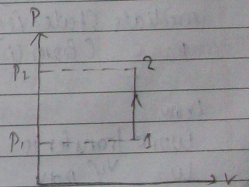 P
P₂ 2
P₁ 1
V